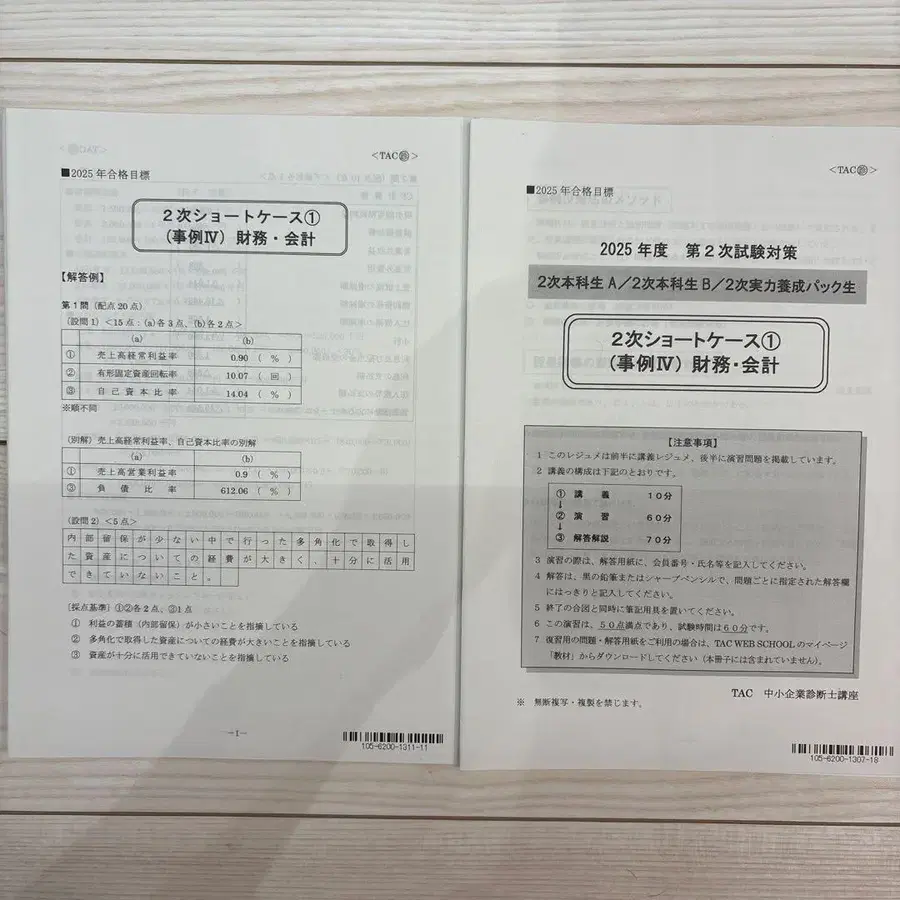 <TAC㊣>
■2025年合格目標
2次ショートケース①
(事例Ⅳ) 財務・会計
【解答例】
第1問 (配点20点)
(設問1) <15点:(a)各3点、(b)各2点>
(a) (b)
① 売上高経常利益率 0.90 ( % )
② 有形固定資産回転率 10.07 ( 回 )
③ 自己資本比率 14.04 ( % )
※順不同
(別解) 売上高経常利益率、自己資本比率の別解
(a) (b)
① 売上高営業利益率 0.9 ( % )
③ 負債比率 612.06 ( % )
(設問2) <5点>
内部留保が少ない中で行った多角化で取得し
た資産についての経費が大きく、十分に活用
できていないこと。
[採点基準] ①②各2点、③1点
① 利益の蓄積(内部留保)が小さいことを指摘している
② 多角化で取得した資産についての経費が大きいことを指摘している
③ 資産が十分に活用できていないことを指摘している
-1-
105-6200-1311-11
<TAC㊣>
■2025年合格目標
2025年度 第2次試験対策
2次本科生A/2次本科生B/2次実力養成パック生
2次ショートケース①
(事例Ⅳ) 財務・会計
【注意事項】
1 このレジュメは前半に講義レジュメ、後半に演習問題を掲載しています。
2 講義の構成は下記のとおりです。
① 講義 10分
↓
② 演習 60分
↓
③ 解答解説 70分
3 演習の際は、解答用紙に、会員番号・氏名等を記入してください。
4 解答は、黒の鉛筆またはシャープペンシルで、問題ごとに指定された解答欄
にはっきりと記入してください。
5 終了の合図と同時に筆記用具を置いてください。
6 この演習は、50点満点であり、試験時間は60分です。
7 復習用の問題・解答用紙をご利用の場合は、TAC WEB SCHOOLのマイページ
「教材」からダウンロードしてください(本冊子には含まれていません)。
TAC 中小企業診断士講座
※ 無断複写・複製を禁じます。
105-6200-1307-18